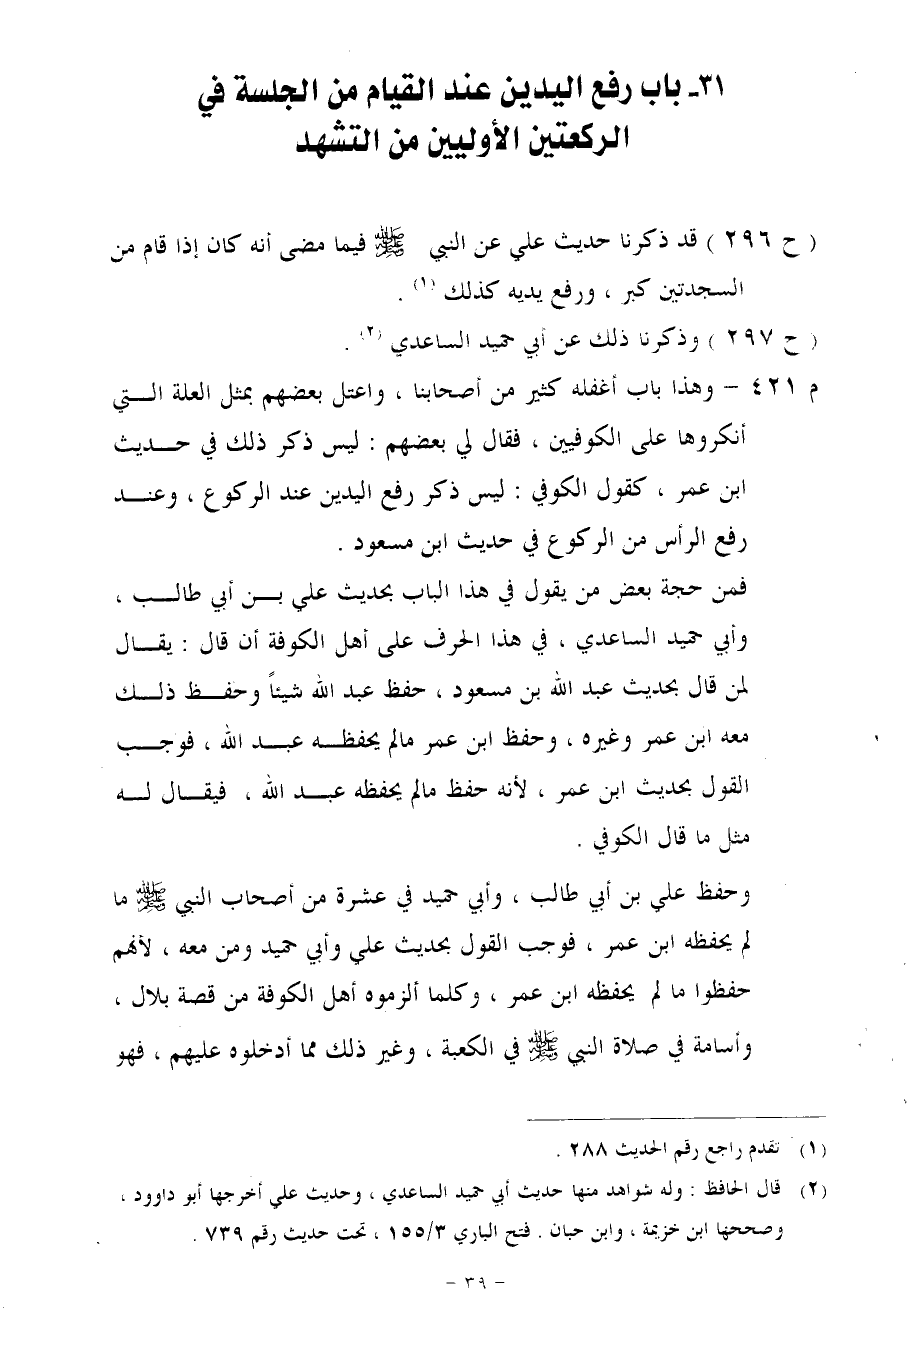 ٣١ـ باب رفع اليدين عند القيام من الجلسة في
الركعتين الأوليين من التشهد
( ح ٢٩٦ ) قد ذكرنا حديث علي عن النبي ﷺ فيما مضى أنه كان إذا قام من
السجدتين كبر ، ورفع يديه كذلك (١) .
( ح ٢٩٧ ) وذكرنا ذلك عن أبي حميد الساعدي (٢) .
م ٤٢١ – وهذا باب أغفله كثير من أصحابنا ، واعتل بعضهم بمثل العلة الـــتي
أنكروها على الكوفيين ، فقال لي بعضهم : ليس ذكر ذلك في حـــديث
ابن عمر ، كقول الكوفي : ليس ذكر رفع اليدين عند الركوع ، وعنـــد
رفع الرأس من الركوع في حديث ابن مسعود .
فمن حجة بعض من يقول في هذا الباب بحديث علي بـــن أبي طالـــب ،
وأبي حميد الساعدي ، في هذا الحرف على أهل الكوفة أن قال : يقـــال
لمن قال بحديث عبد الله بن مسعود ، حفظ عبد الله شيئاً وحفـــظ ذلـــك
معه ابن عمر وغيره ، وحفظ ابن عمر مالم يحفظـــه عبـــد الله ، فوجـــب
القول بحديث ابن عمر ، لأنه حفظ مالم يحفظه عبـــد الله ، فيقـــال لـــه
مثل ما قال الكوفي .
وحفظ علي بن أبي طالب ، وأبي حميد في عشرة من أصحاب النبي ﷺ ما
لم يحفظه ابن عمر ، فوجب القول بحديث علي وأبي حميد ومن معه ، لأنهم
حفظوا ما لم يحفظه ابن عمر ، وكلما ألزموه أهل الكوفة من قصة بلال ،
وأسامة في صلاة النبي ﷺ في الكعبة ، وغير ذلك مما أدخلوه عليهم ، فهو
(١) تقدم راجع رقم الحديث ٢٨٨ .
(٢) قال الحافظ : وله شواهد منها حديث أبي حميد الساعدي ، وحديث علي أخرجها أبو داوود ،
وصححها ابن خزيمة ، وابن حبان . فتح الباري ١٥٥/٣ ، تحت حديث رقم ٧٣٩ .
- ٣٩ -